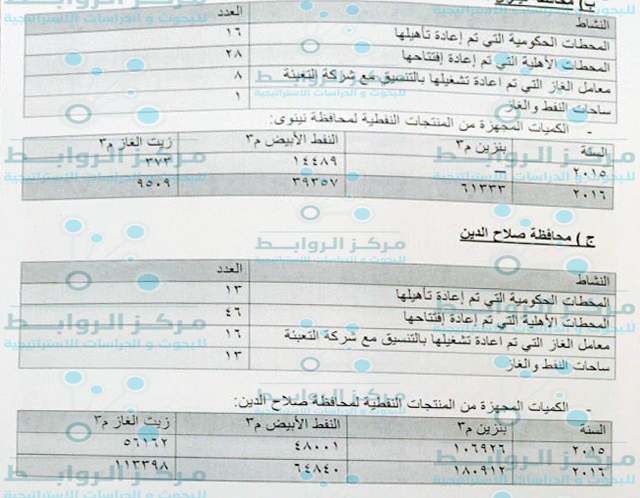 ب) محافظة نينوى
النشاط العدد
المحطات الحكومية التي تم إعادة تأهيلها ١٦
المحطات الأهلية التي تم إعادة إفتتاحها ٢٨
معامل الغاز التي تم اعادة تشغيلها بالتنسيق مع شركة التعبئة ٨
ساحات النفط والغاز ١
- الكميات المجهزة من المنتجات النفطية لمحافظة نينوى:
السنة بنزين م٣ النفط الأبيض م٣ زيت الغاز م٣
٢٠١٥ — ١٤٤٨٩ ٣٧٣
٢٠١٦ ٦١٣٣٣ ٣٩٣٥٧ ٩٥٠٩
ج) محافظة صلاح الدين
النشاط العدد
المحطات الحكومية التي تم إعادة تأهيلها ١٣
المحطات الأهلية التي تم إعادة إفتتاحها ٤٦
معامل الغاز التي تم اعادة تشغيلها بالتنسيق مع شركة التعبئة ١٦
ساحات النفط والغاز ١٣
- الكميات المجهزة من المنتجات النفطية لمحافظة صلاح الدين:
السنة بنزين م٣ النفط الأبيض م٣ زيت الغاز م٣
٢٠١٥ ١٠٦٩٢٦ ٤٨٠٠١ ٥٦١٦٢
٢٠١٦ ١٨٠٩١٢ ٦٤٨٤٠ ١١٣٣٩٨
مركز الروابط
للبحوث و الدراسات الاستراتيجية